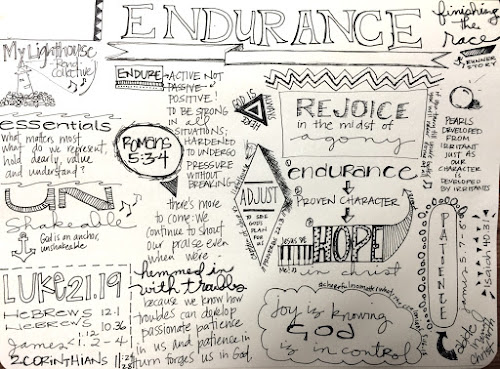 ENDURANCE
finishing
the
race
RUNNER
STORY
My Lighthouse
Rend
Collective
ENDURE
ACTIVE NOT
PASSIVE
POSITIVE!
TO BE STRONG
IN all
SITUATIONS;
HARDENED
TO UNDERGO
PRESSURE
WITHOUT
BREAKING
GOD IS
ALWAYS
HERE
REJOICE
in the midst of
agony
PEARLS
DEVELOPED
FROM
IRRITANT
JUST AS
OUR
CHARACTER
IS
DEVELOPED
BY IRRITANTS
essentials
what matters most
what do we represent,
hold dearly, value
and understand?
Romans
5:3-4
UN
Shakeable
God is an anchor,
unshakeable
there's
more to
come: We
continue to
shout
our praise
even
when we're
hemmed in
with troubles
because we know how
troubles can develop
passionate patience
in us and patience in
turn forges us in God.
ADJUST
TO SEE
GOD'S
PLAN
FOR
US
① endurance
② PROVEN CHARACTER
③ HOPE
in christ
Jesus
Me
PATIENCE
James 5:7-8
Isaiah 40:31
abide
in
Christ
LUKE 21.19
HEBREWS 12:1
HEBREWS 10.36
James 1:2-4
2 CORINTHIANS
joy is knowing
GOD
is in control